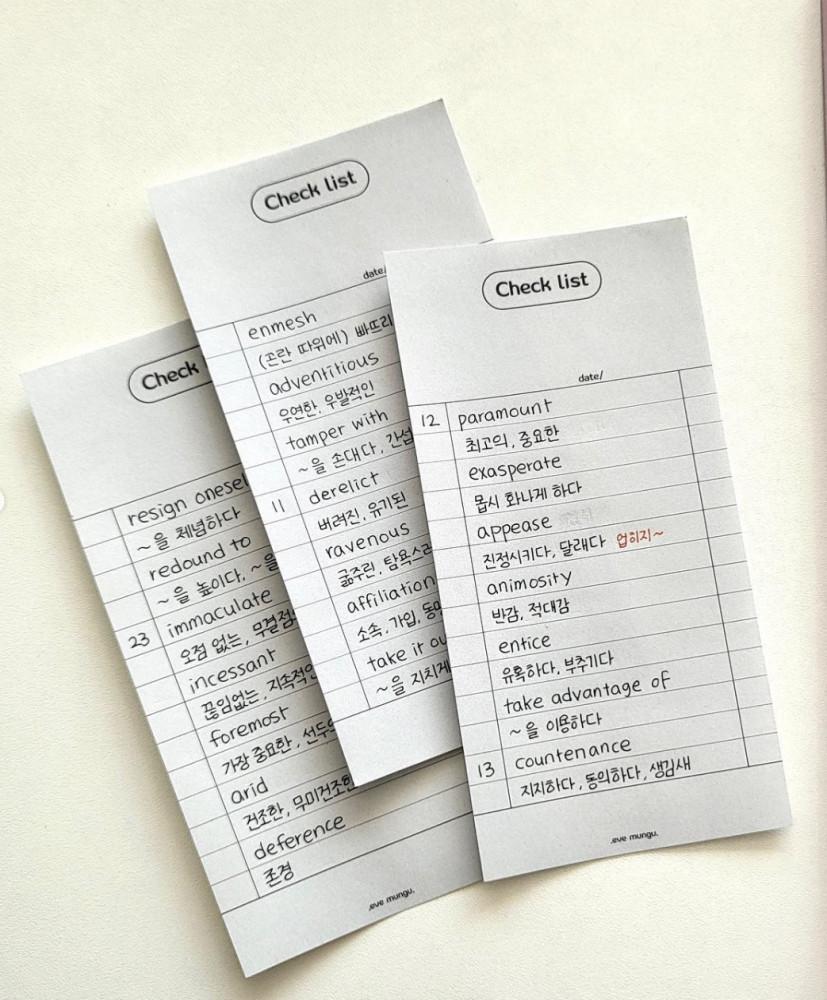 Check
resign onesel
~을 체념하다
redound to
~을 높이다, ~을
23 immaculate
오점 없는, 무결점
incessant
끊임없는, 지속적인
foremost
가장 중요한, 선두의
arid
건조한, 무미건조한
deference
존경
.eve mungu.
Check list
date/
enmesh
(곤란 따위에) 빠뜨리
adventitious
우연한, 우발적인
tamper with
~을 손대다, 간섭
11 derelict
버려진, 유기된
ravenous
굶주린, 탐욕스러
affiliation
소속, 가입, 동맹
take it ou
~을 지치게
Check list
date/
12 paramount
최고의, 중요한
exasperate
몹시 화나게 하다
appease
진정시키다, 달래다 업히지~
animosity
반감, 적대감
entice
유혹하다, 부추기다
take advantage of
~을 이용하다
13 countenance
지지하다, 동의하다, 생김새
.eve mungu.